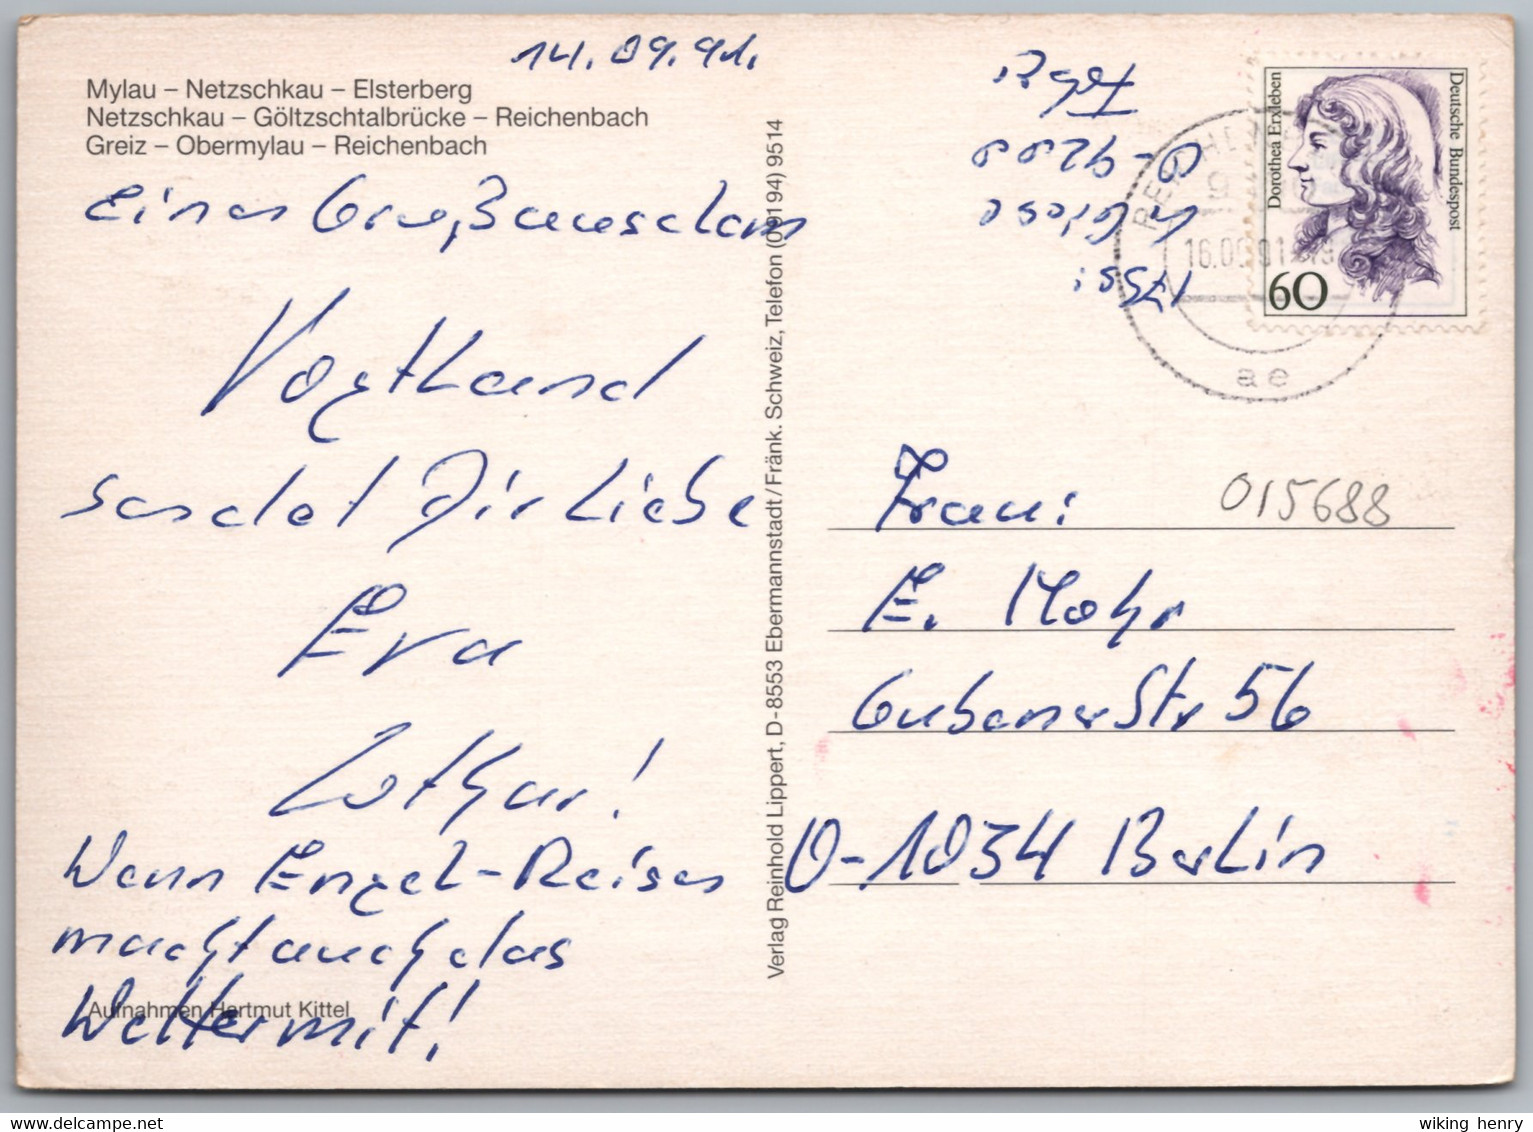 14.09.91.
Mylau – Netzschkau – Elsterberg
Netzschkau – Göltzschtalbrücke – Reichenbach
Greiz – Obermylau – Reichenbach
Einen Gruß aus dem
Vogtland
sendet Dir Liebe
Eva
Lothar!
Wenn Engel-Reisen
macht auch das
Wetter mit!
Aufnahmen Hartmut Kittel
Verlag Reinhold Lippert, D-8553 Ebermannstadt/Fränk. Schweiz, Telefon (09194) 9514
Deutsche Bundespost
Dorothea Erxleben
60
16.09.91
ae
015688
Frau:
E. Mohr
Gubener Str 56
O-1034 Berlin
wiking henry